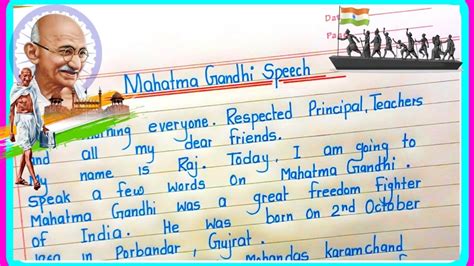 Da
Pa
Mahatma Gandhi Speech
morning everyone. Respected Principal, Teachers
and all my dear friends.
My name is Raj. Today, I am going to
Speak a few words on Mahatma Gandhi.
Mahatma Gandhi was a great freedom Fighter
of India. He was born on 2nd October
in Porbandar, Gujrat.
Mohandas karamchand